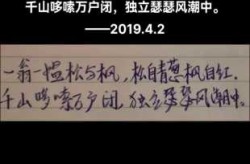 千山哆嗦万户闭，独立瑟瑟风潮中。
——2019.4.2
一翁一媪松与枫，松自青葱枫自红。
千山哆嗦万户闭，独立瑟瑟风潮中。